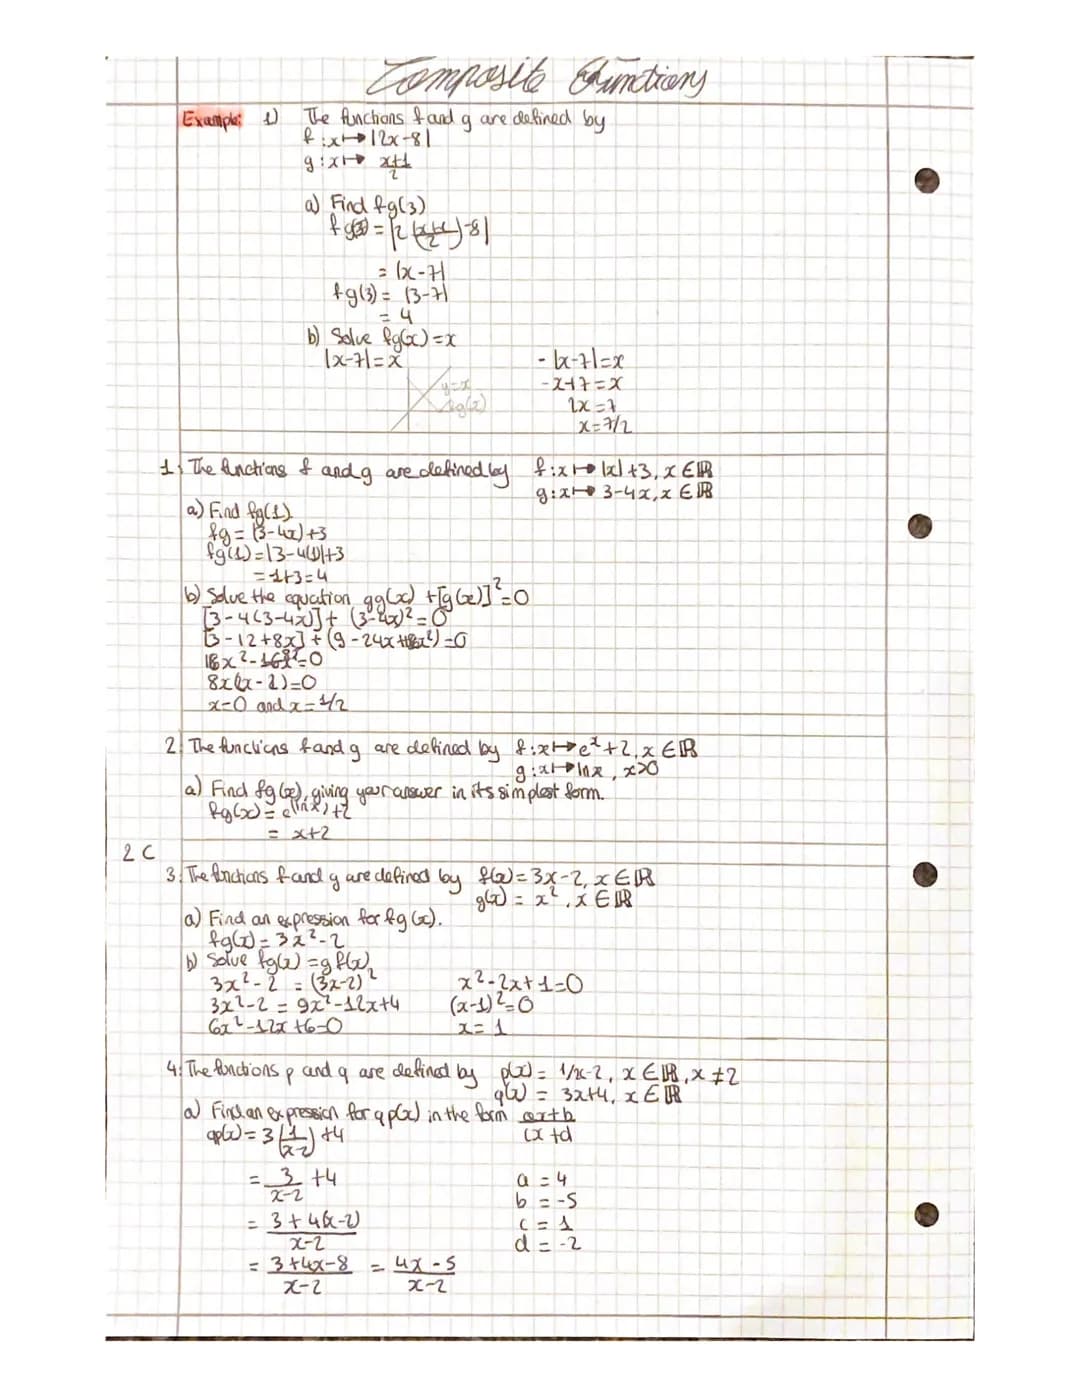 Composite Functions
Example: 1) The functions f and g are defined by
f:x↦|2x-8|
g:x↦ x+1/2
a) Find fg(3)
fg(3) = |2(x+1/2)-8|
= |x-7|
fg(3) = |3-7|
= 4
b) Solve fg(x)=x
|x-7|=x
y=x
fg(x)
-|x-7|=x
-x+7=x
2x=7
x=7/2
1. The functions f and g are defined by f:x↦|x|+3, x∈ℝ
g:x↦3-4x, x∈ℝ
a) Find fg(1).
fg = |3-4x|+3
fg(1)=|3-4(1)|+3
=1+3=4
b) Solve the equation gg(x)+[g(x)]²=0
[3-4(3-4x)]+(3-4x)²=0
[3-12+8x]+(9-24x+16x²)=0
16x²-16x=0
8x(x-1)=0
x=0 and x=1/2
2. The functions f and g are defined by f:x↦eˣ+2, x∈ℝ
g:x↦lnx, x>0
a) Find fg(x), giving your answer in its simplest form.
fg(x)=e^(lnx)+2
= x+2
2C
3. The functions f and g are defined by f(x)=3x-2, x∈ℝ
g(x) = x², x∈ℝ
a) Find an expression for fg(x).
fg(x)=3x²-2
b) Solve fg(x)=gf(x)
3x²-2 = (3x-2)²
3x²-2 = 9x²-12x+4
6x²-12x+6=0
x²-2x+1=0
(x-1)²=0
x=1
4. The functions p and q are defined by p(x) = 1/x-2, x∈ℝ, x≠2
q(x) = 3x+4, x∈ℝ
a) Find an expression for qp(x) in the form ax+b/cx+d
qp(x)=3(1/x-2)+4
= 3/x-2 +4
= 3+4(x-2)/x-2
= 3+4x-8/x-2 = 4x-5/x-2
a = 4
b = -5
c = 1
d = -2